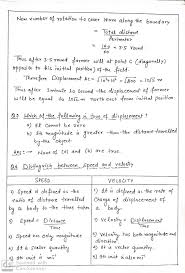 New number of rotation to cover 140m along the boundary
= Total distance
Perimeter
= 140 = 3.5 round
40
Thus after 3.5 round farmer will at point C (diagonally
opposite to his initial position) of the field.
Therefore Displacement AC = √10²+10² = √200 = 10√2 m
Thus after 2 minute 20 second the displacement of farmer
will be equal to 10√2 m north east from initial position.
Q3 Which of the following is true of displacement?
a) It cannot be zero
b) Its magnitude is greater than the distance travelled
by the object.
Ans:- None of (a) and (b) are true.
Q4 Distinguish between speed and velocity
SPEED
1) Speed is defined as the
ratio of distance travelled
by a body to the time taken
2) Speed = Distance
Time
3) Speed has only magnitude
4) It is scalar quantity
5) SI unit is ms⁻¹
VELOCITY
1) It is defined as the rate of
change of displacement of
a body.
2) Velocity = Displacement
Time
3) Velocity has both magnitude and
direction
4) It is a vector quantity.
5) SI unit is also ms⁻¹